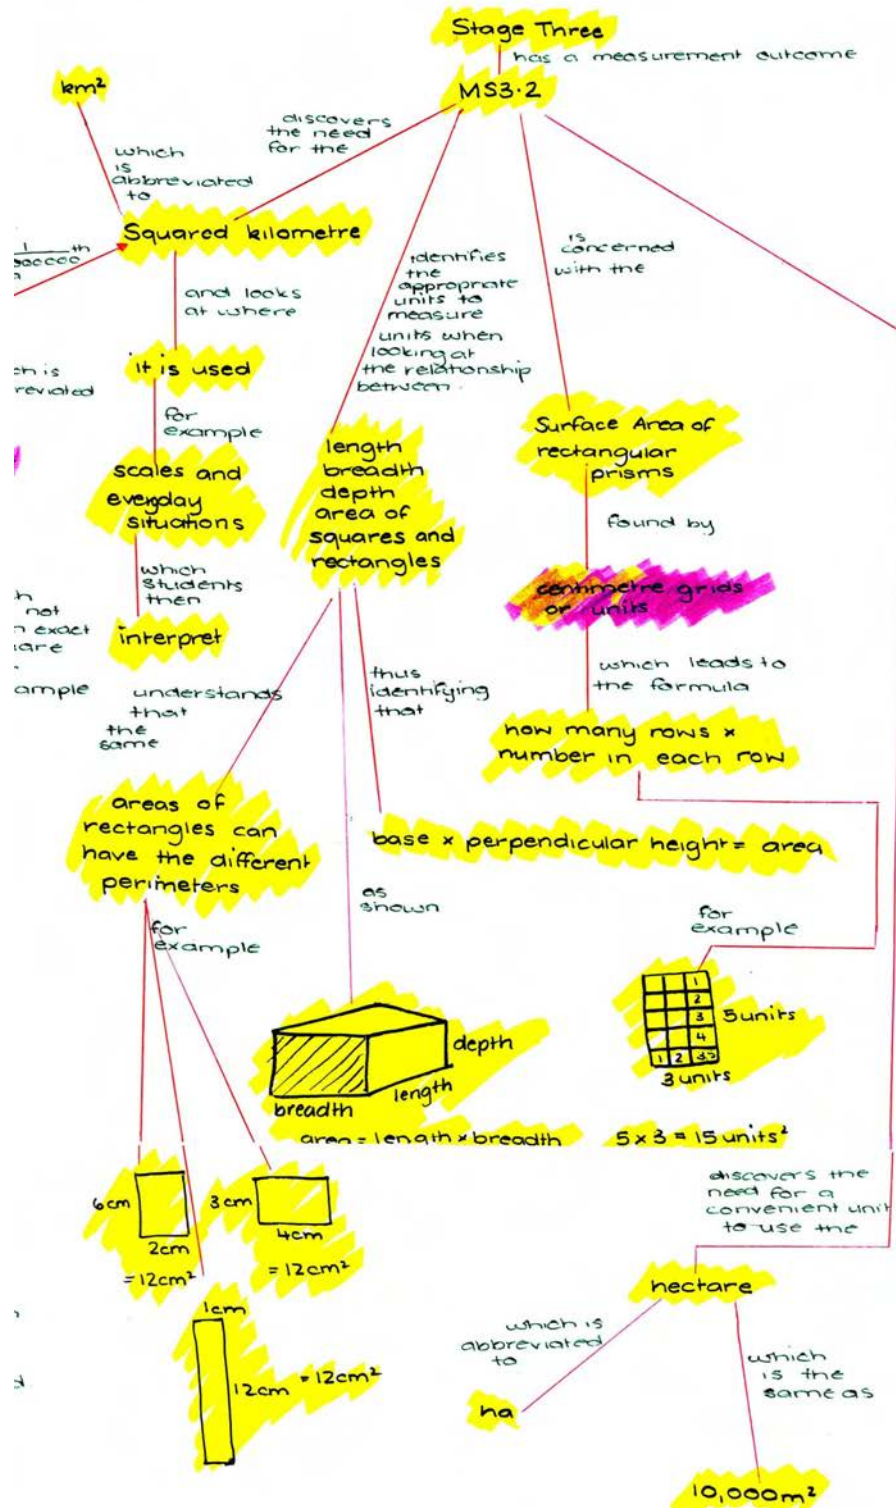 Stage Three
has a measurement outcome
MS3.2
km²
which
is
abbreviated
to
discovers
the need
for the
Squared kilometre
1 th
and looks
at where
it is used
for
example
scales and
everyday
situations
which
students
then
interpret
identifies
the
appropriate
units to
measure
units when
looking at
the relationship
between.
length
breadth
depth
area of
squares and
rectangles
is
concerned
with the
Surface Area of
rectangular
prisms
found by
centimetre grids
or units
which leads to
the formula
how many rows ×
number in each row
understands
that
the
same
areas of
rectangles can
have the different
perimeters
for
example
thus
identifying
that
base × perpendicular height = area
as
shown
depth
length
breadth
area = length × breadth
for
example
1
2
3
4
1 2
5 units
3 units
5 × 3 = 15 units²
6cm
2cm
= 12cm²
3cm
4cm
= 12cm²
1cm
12cm = 12cm²
discovers the
need for a
convenient unit
to use the
hectare
which is
abbreviated
to
ha
which
is the
same as
10,000m²
is
not
exact